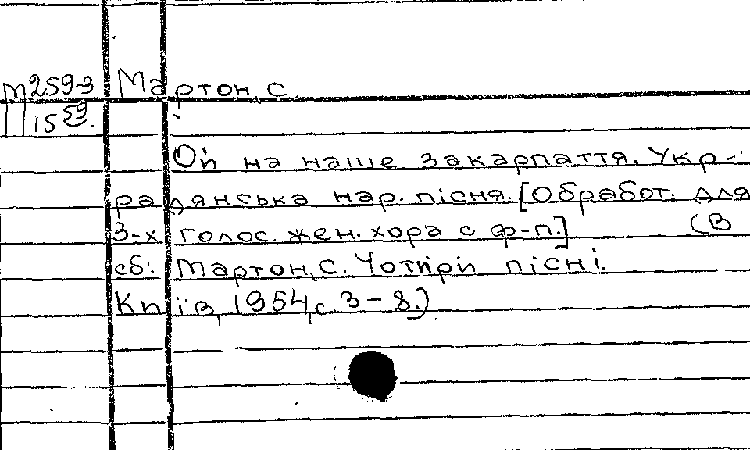 М259-3 Мартон, С.
1153.
Ой на наше закарпаття. Укр.
радянська нар. пісня. [Обработ. для
3-х голос. жен. хора с ф-п.] (В
сб: Мартон, С. Чотири пісні.
Київ, 1954, с. 3-8.)